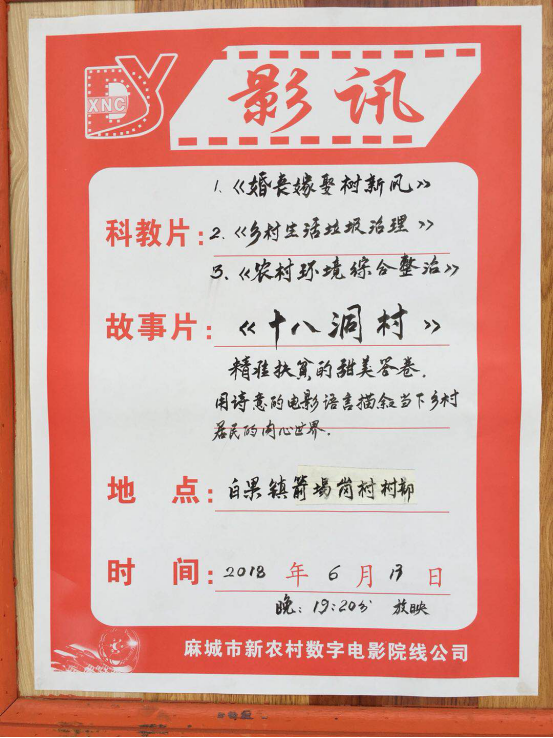 DY
XNC
影讯
1、《婚丧嫁娶树新风》
科教片：2、《乡村生活垃圾治理》
3、《农村环境综合整治》
故事片：《十八洞村》
精准扶贫的甜美答卷，
用诗意的电影语言描叙当下乡村
居民的内心世界.
地 点：白果镇箭场岗村村部
时 间：2018年6月13日
晚：19:20分 放映
麻城市新农村数字电影院线公司